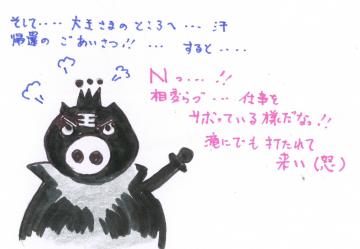 そして‥‥ 大王さまの ところへ… 汗
帰還の ごあいさつ!! … すると‥‥
Nっ…!!
相変らづ… 仕事を
サボっている様だなっ!!
滝にでも打たれて
来い(怒)
王